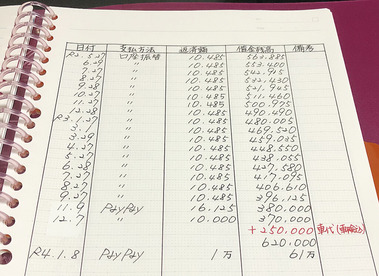 日付 支払方法 返済額 借金残高 備考
R2.5.27 口座振替 10.485 563.885
6.29 〃 10.485 553.400
7.27 〃 10.485 542.915
8.27 〃 10.485 532.430
9.28 〃 10.485 521.945
10.27 〃 10.485 511.460
11.27 〃 10.485 500.975
12.28 〃 10.485 490.490
R3.1.27 〃 10.485 480.005
3.1 〃 10.485 469.520
3.29 〃 10.485 459.035
4.27 〃 10.485 448.550
5.27 〃 10.485 438.055
6.28 〃 10.485 427.580
7.27 〃 10.485 417.095
8.27 〃 10.485 406.610
9.27 〃 10.485 396.125
11.9 PayPay 16.125 380.000
12.7 〃 10.000 370.000
+250.000 車代
620.000
R4.1.8 PayPay 1万 61万